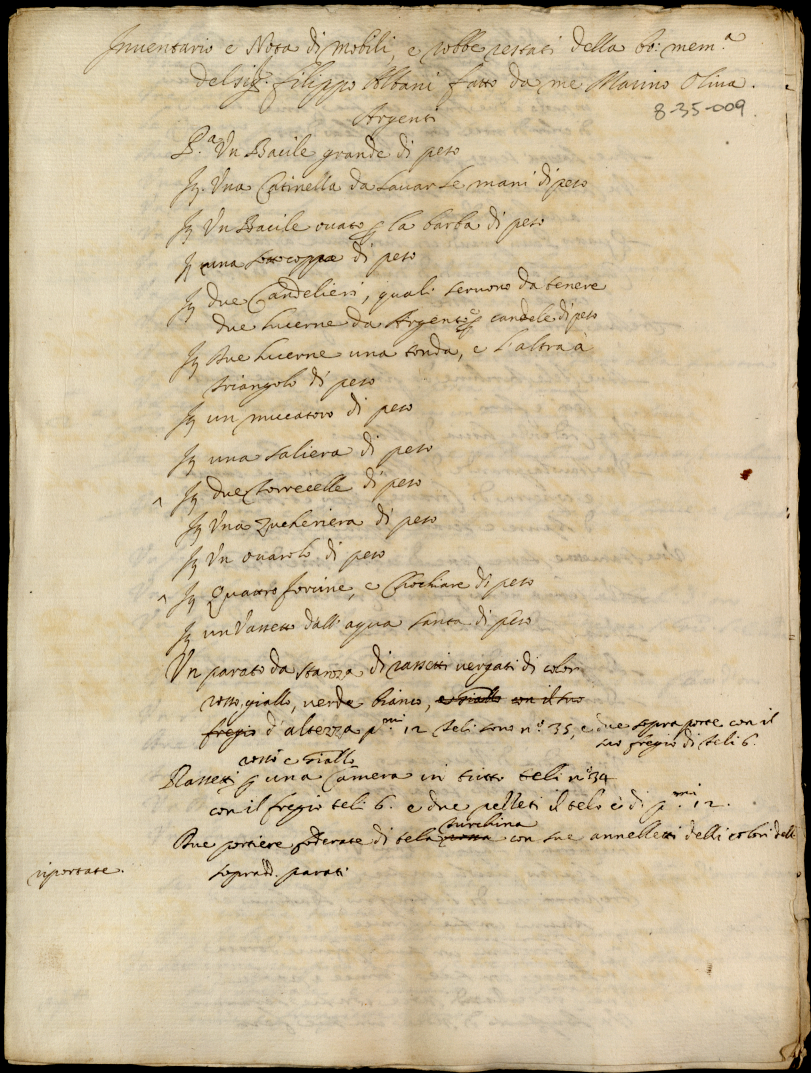 Inventario e Nota di mobili, e robbe restati della bo: mem.a
del sig.r Filippo Albani fatto da me Marino Oliva.
8-35-009
Argenti
P.a Un Bacile grande di peso
It. Una Catinella da lavar le mani di peso
It Un Bacile ovato p la barba di peso
It una sottocoppa di peso
It due Candelieri, quali servono da tenere
due lucerne da Argento e p candele di peso
It Due lucerne una tonda, e l'altra à
triangolo di peso
It un muccatoro di peso
It una saliera di peso
It due Torrecelle di peso
It Una Zucheriera di peso
It Un ovarolo di peso
It Quattro forcine, e Chochiare di peso
It un Vasetto dall' aqua santa di peso
Un parato da stanza di rassetti vergati di color
rosso, giallo, verde bianco, e Giallo con il suo
fregio d'altezza p.mi 12 teli sono n.o 35, e due sopra porte con il
suo fregio di teli 6.
rosso e Giallo
Rassetti p una Camera in tutto teli n.o 34
con il fregio teli 6. e due pelleti il telo è di p.mi 12.
turchina
Due portiere foderate di tela con sue annelletti delli colori delli
riportate.
sopradd. parati